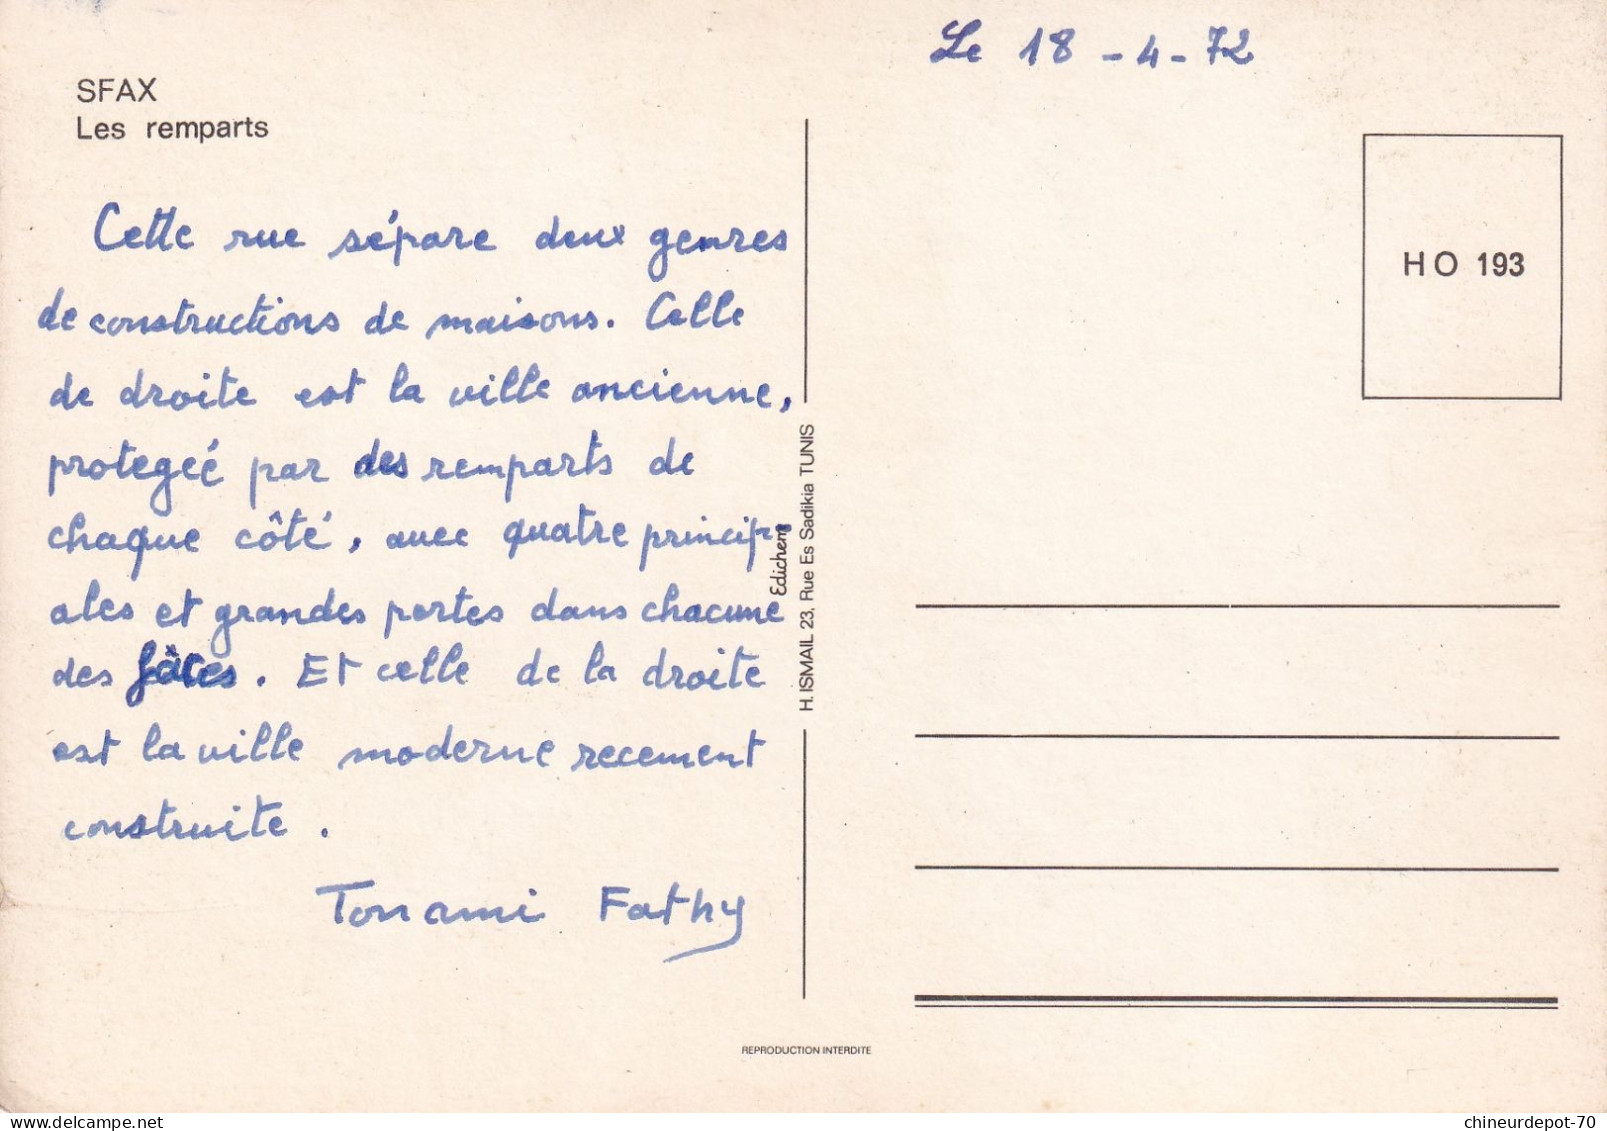 Le 18-4-72
SFAX
Les remparts
Cette rue sépare deux genres
de constructions de maisons. Celle
de droite est la ville ancienne,
protegeé par des remparts de
chaque côté, avec quatre princip-
ales et grandes portes dans chacune
des . Et celle de la droite
est la ville moderne recement
construite.
Fathy
Edichem
H. ISMAIL 23, Rue Es Sadikia TUNIS
HO 193
REPRODUCTION INTERDITE
chineurdepot-70